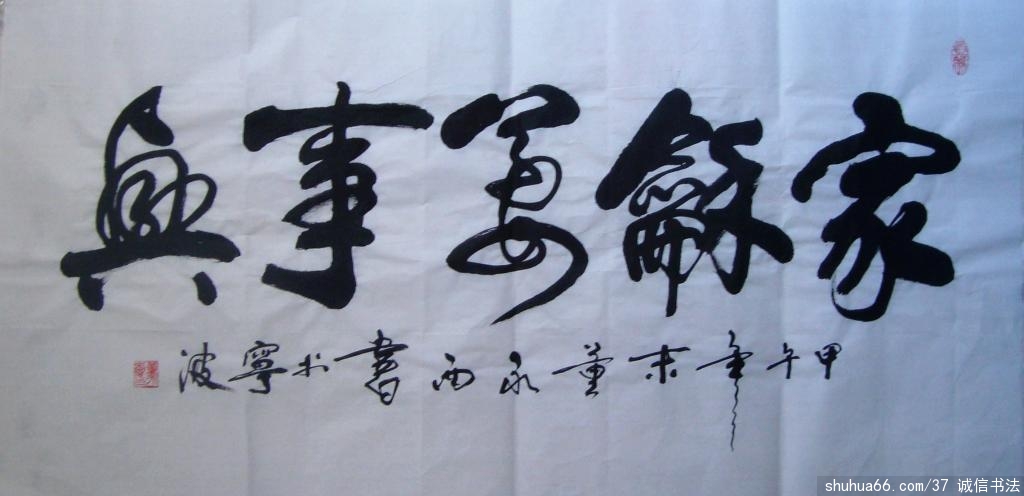 家龢萬事興
甲午年末董永西書於寧波
shuhua66.com/37 诚信书法